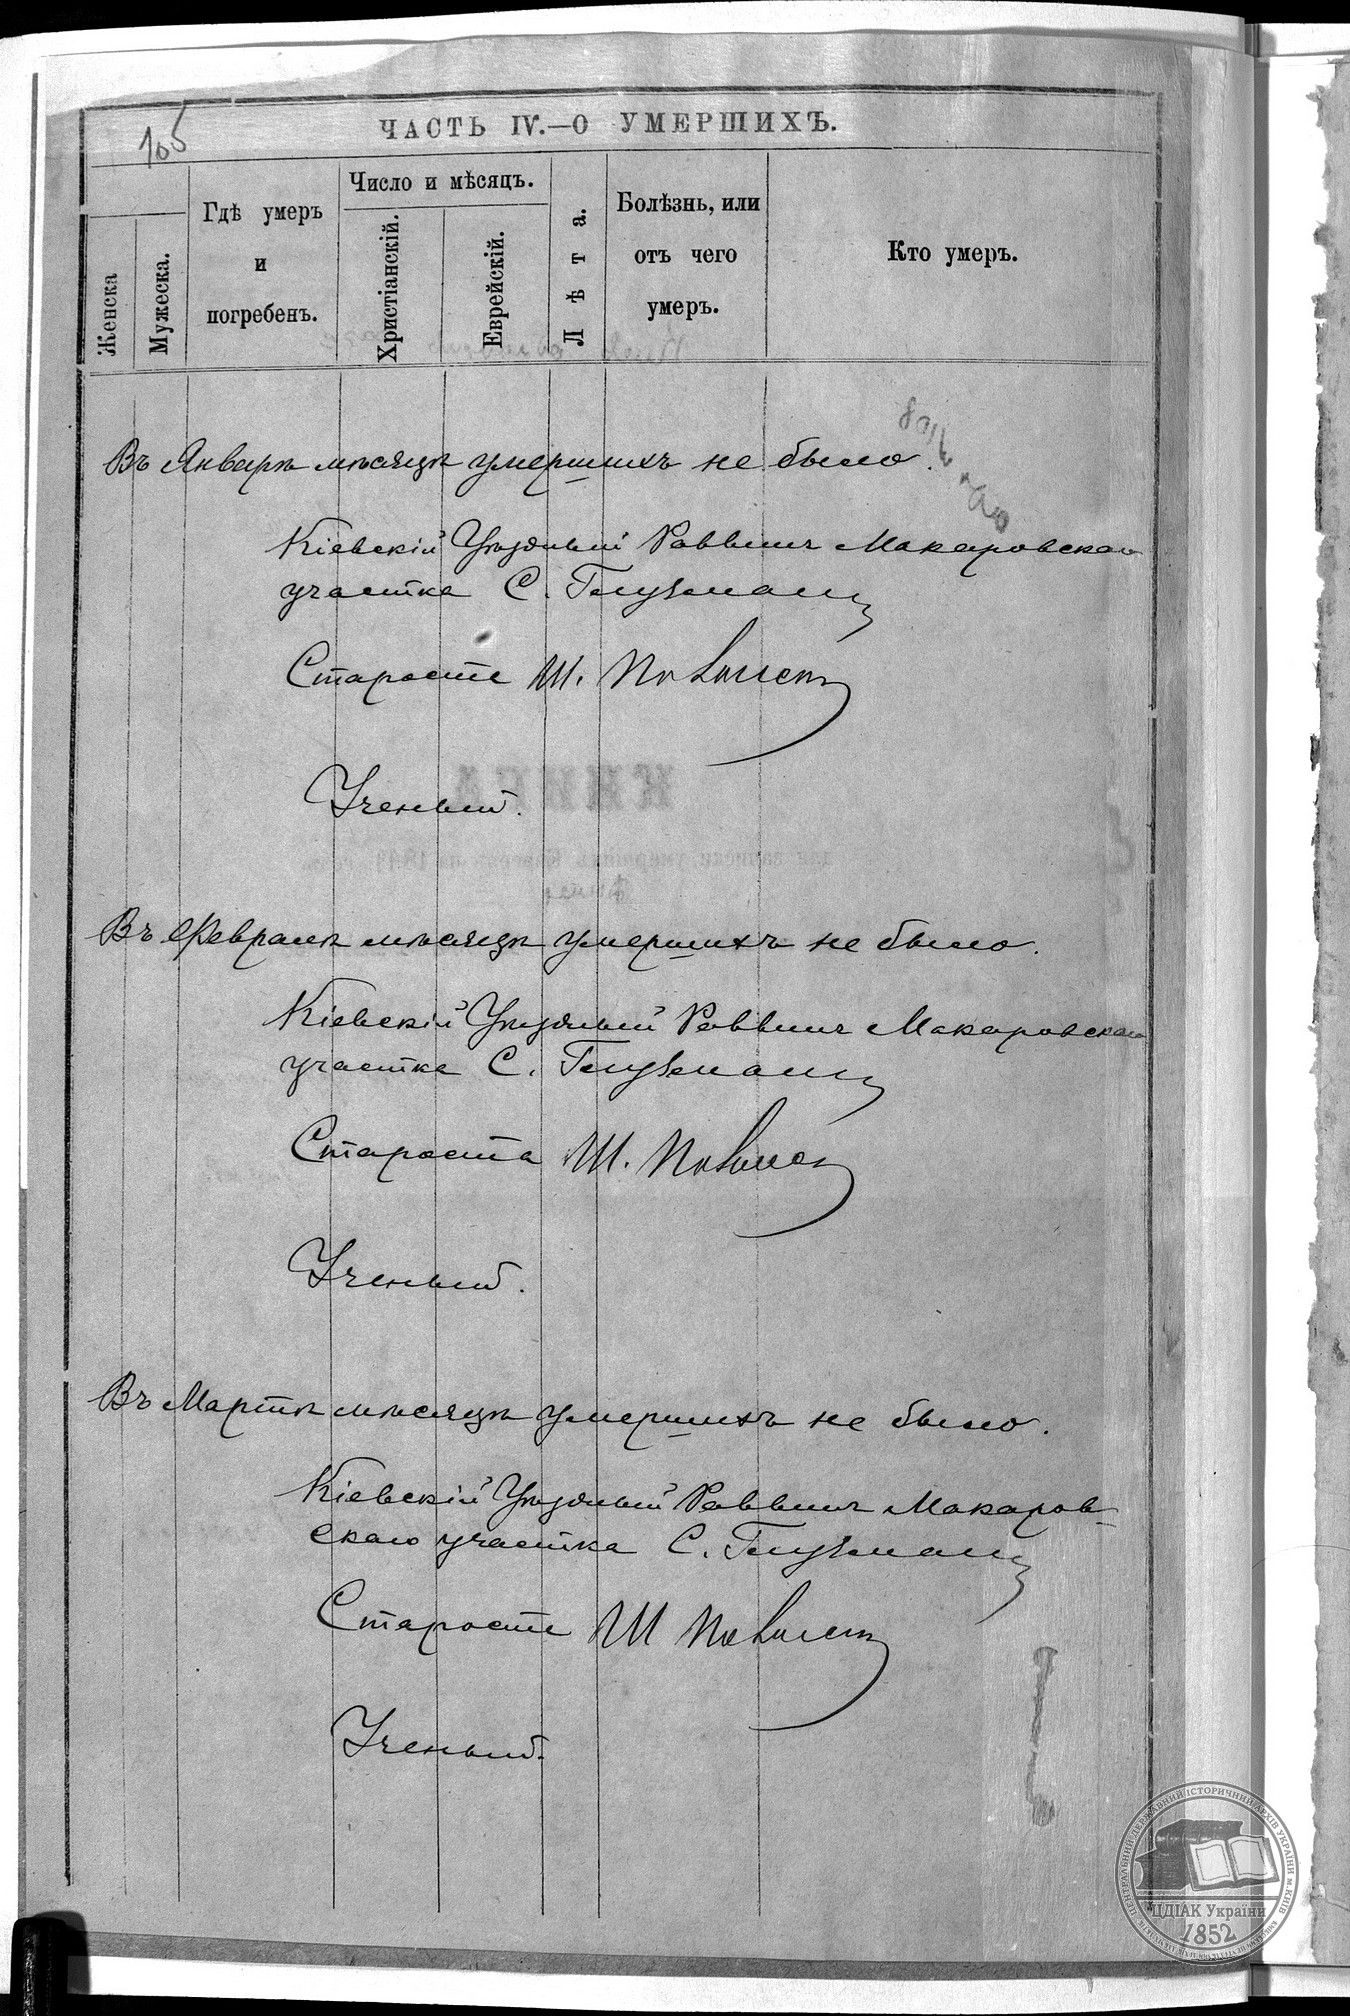 105
ЧАСТЬ IV.—О УМЕРШИХЪ.
Женска
Мужеска.
Гдѣ умеръ
и
погребенъ.
Число и мѣсяцъ.
Христіанскій.
Еврейскій.
Лѣта.
Болѣзнь, или
отъ чего
умеръ.
Кто умеръ.
Въ Январѣ мѣсяцѣ умершихъ не было.
Кіевскій Уѣздный Раввинъ Макаровскаго
участка С. Глузманъ
Староста Ш.
Ученый.
КНИГА
Въ Февралѣ мѣсяцѣ умершихъ не было.
Кіевскій Уѣздный Раввинъ Макаровскаго
участка С. Глузманъ
Староста Ш.
Ученый.
Въ Мартѣ мѣсяцѣ умершихъ не было.
Кіевскій Уѣздный Раввинъ Макаров-
скаго участка С. Глузманъ
Староста Ш
Ученый.
ЦЕНТРАЛЬНИЙ ДЕРЖАВНИЙ ІСТОРИЧНИЙ АРХІВ УКРАЇНИ м.КИЇВ
ЦДІАК України
1852